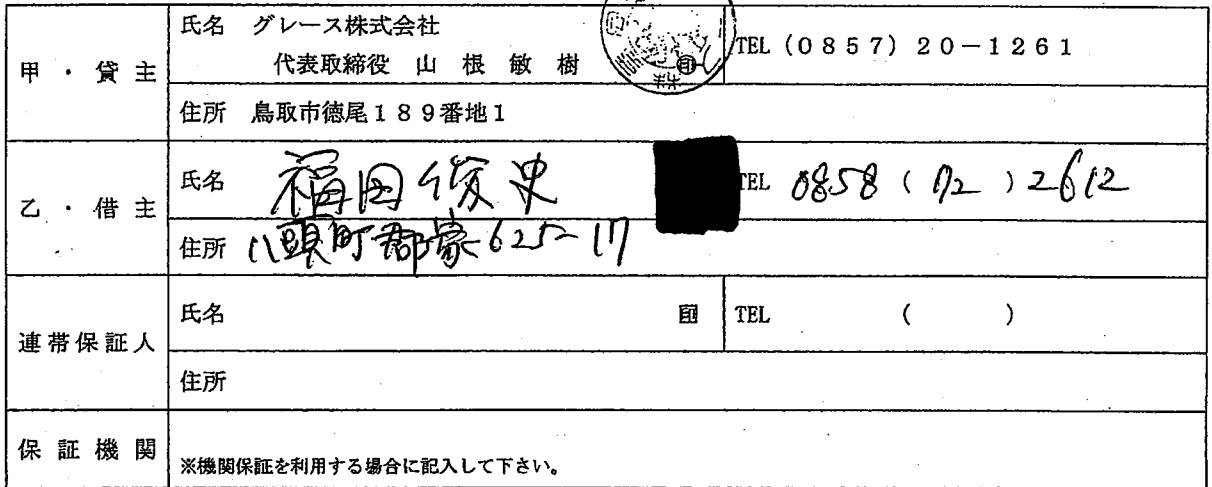 甲・貸主
氏名 グレース株式会社
代表取締役 山根敏樹 印
TEL (0857) 20-1261
住所 鳥取市徳尾189番地1
乙・借主
氏名 福田俊史
TEL 0858 (72) 2612
住所 八頭町郡家625-17
連帯保証人
氏名 印
TEL ( )
住所
保証機関
※機関保証を利用する場合に記入して下さい。